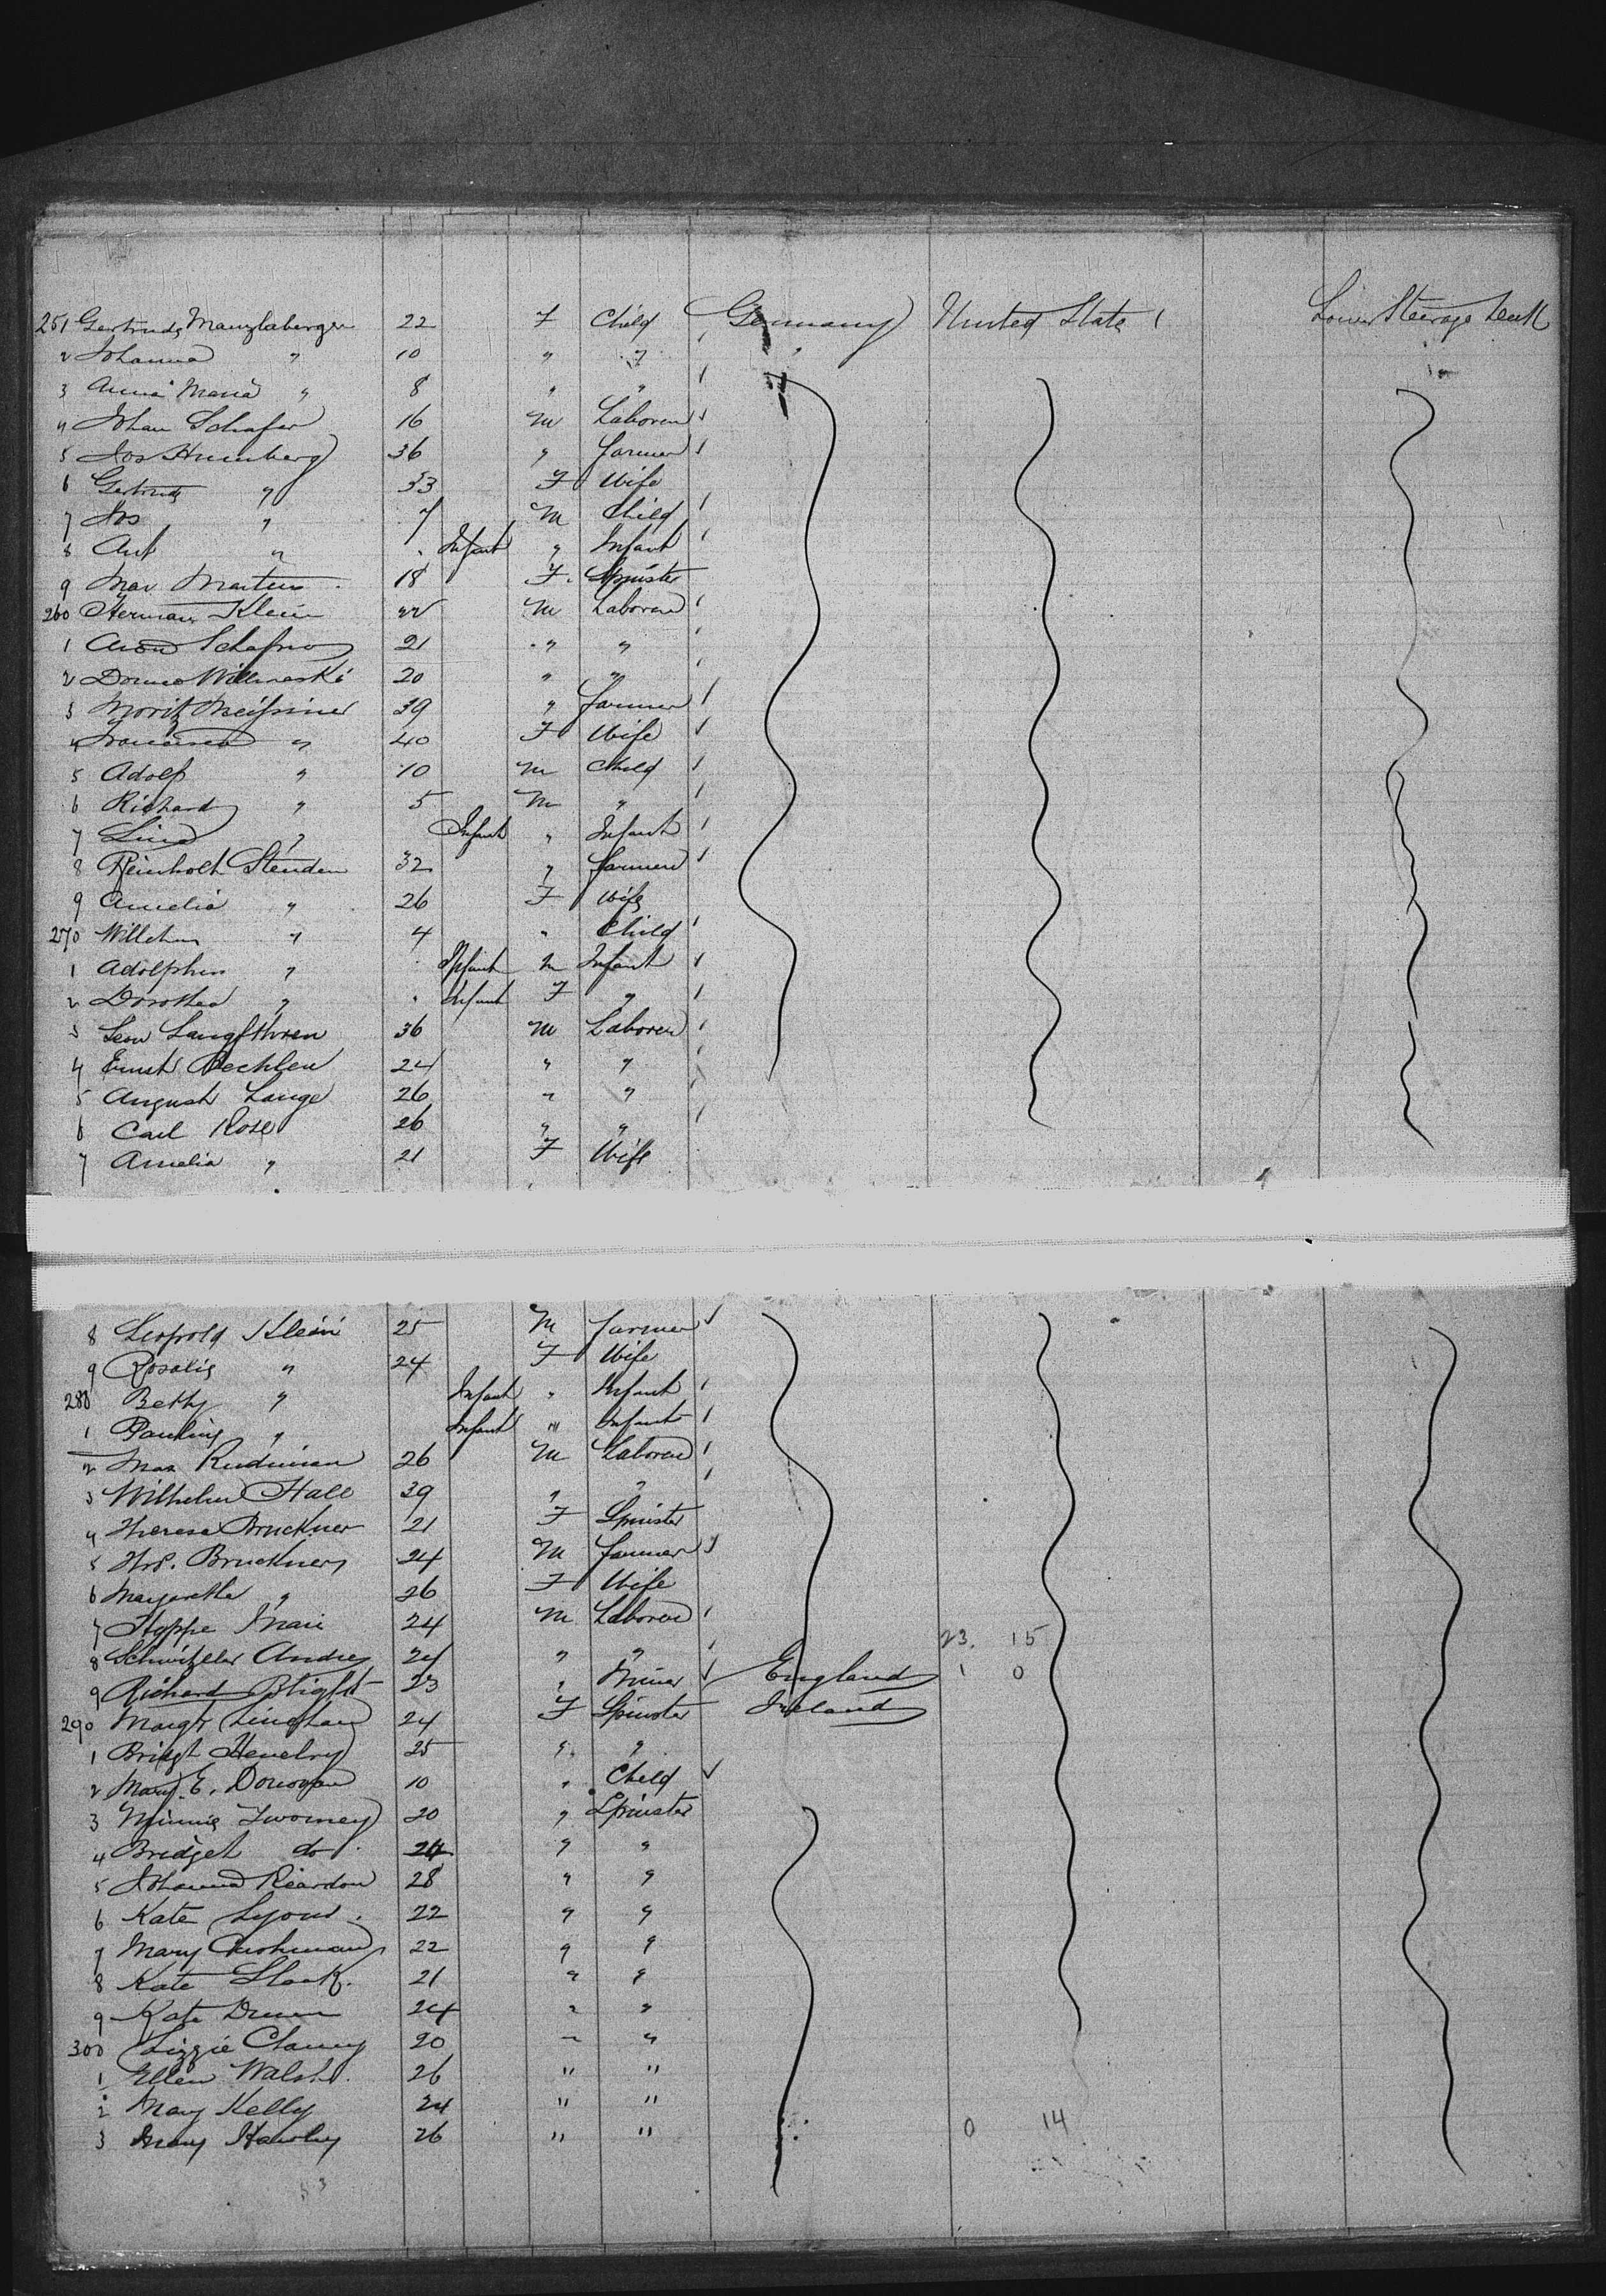 251 Gertrude Manzlaberger 22 F Child Germany United State Lower Steerage Deck
2 Johanna " 10 " "
3 Anna Maria " 8 " "
4 Johan Schafer 16 M Laborer
5 Jos Humberg 36 " farmer
6 Gertrude " 33 F Wife
7 Jos " 7 M Child
8 Ant " Infant " Infant
9 Mar Martens 18 F. Spinster
260 Herman Klein 22 M Laborer
1 21 " "
2 20 " "
3 Moritz Meissner 39 " farmer
4 " 40 F Wife
5 Adolf " 10 M Child
6 Richard " 5 M "
7 Lina " Infant " Infant
8 Reinholt Stenden 32 " farmer
9 Amelia " 26 F Wife
270 " 4 " Child
1 " Infant M Infant
2 Dorothea " Infant F "
3 36 M Laborer
4 Ernst Bechlen 24 " "
5 August Lange 26 " "
6 Carl Rose 26 " "
7 Amelia " 21 F Wife
8 Leopold Klein 25 M farmer
9 Rosalie " 24 F Wife
280 Betty " Infant " Infant
1 Pauline " Infant " Infant
2 Max Rudiman 26 M Laborer
3 Wilhelm Hall 39 " "
4 Theresa Bruckner 21 F Spinster
5 Bruckner 24 M farmer
6 Margaretha " 26 F Wife
7 Hoppe 24 M Laborer
8 24 " " 23. 15
9 Richard Blight 23 " Miner England 1 0
290 Margt 24 F Spinster Ireland
1 Bridgt 25 " "
2 Mary E. Donovan 10 " Child
3 Minnie Twomey 20 " Spinster
4 Bridget do 24 " "
5 Johanna Reardon 28 " "
6 Kate Lyons. 22 " "
7 Mary Cushman 22 " "
8 Kate 21 " "
9 Kate 24 " "
300 Lizzie Clancy 20 " "
1 Ellen Walsh. 26 " "
2 Mary Kelly 24 " "
3 Mary Hawley 26 " " 0 14
53